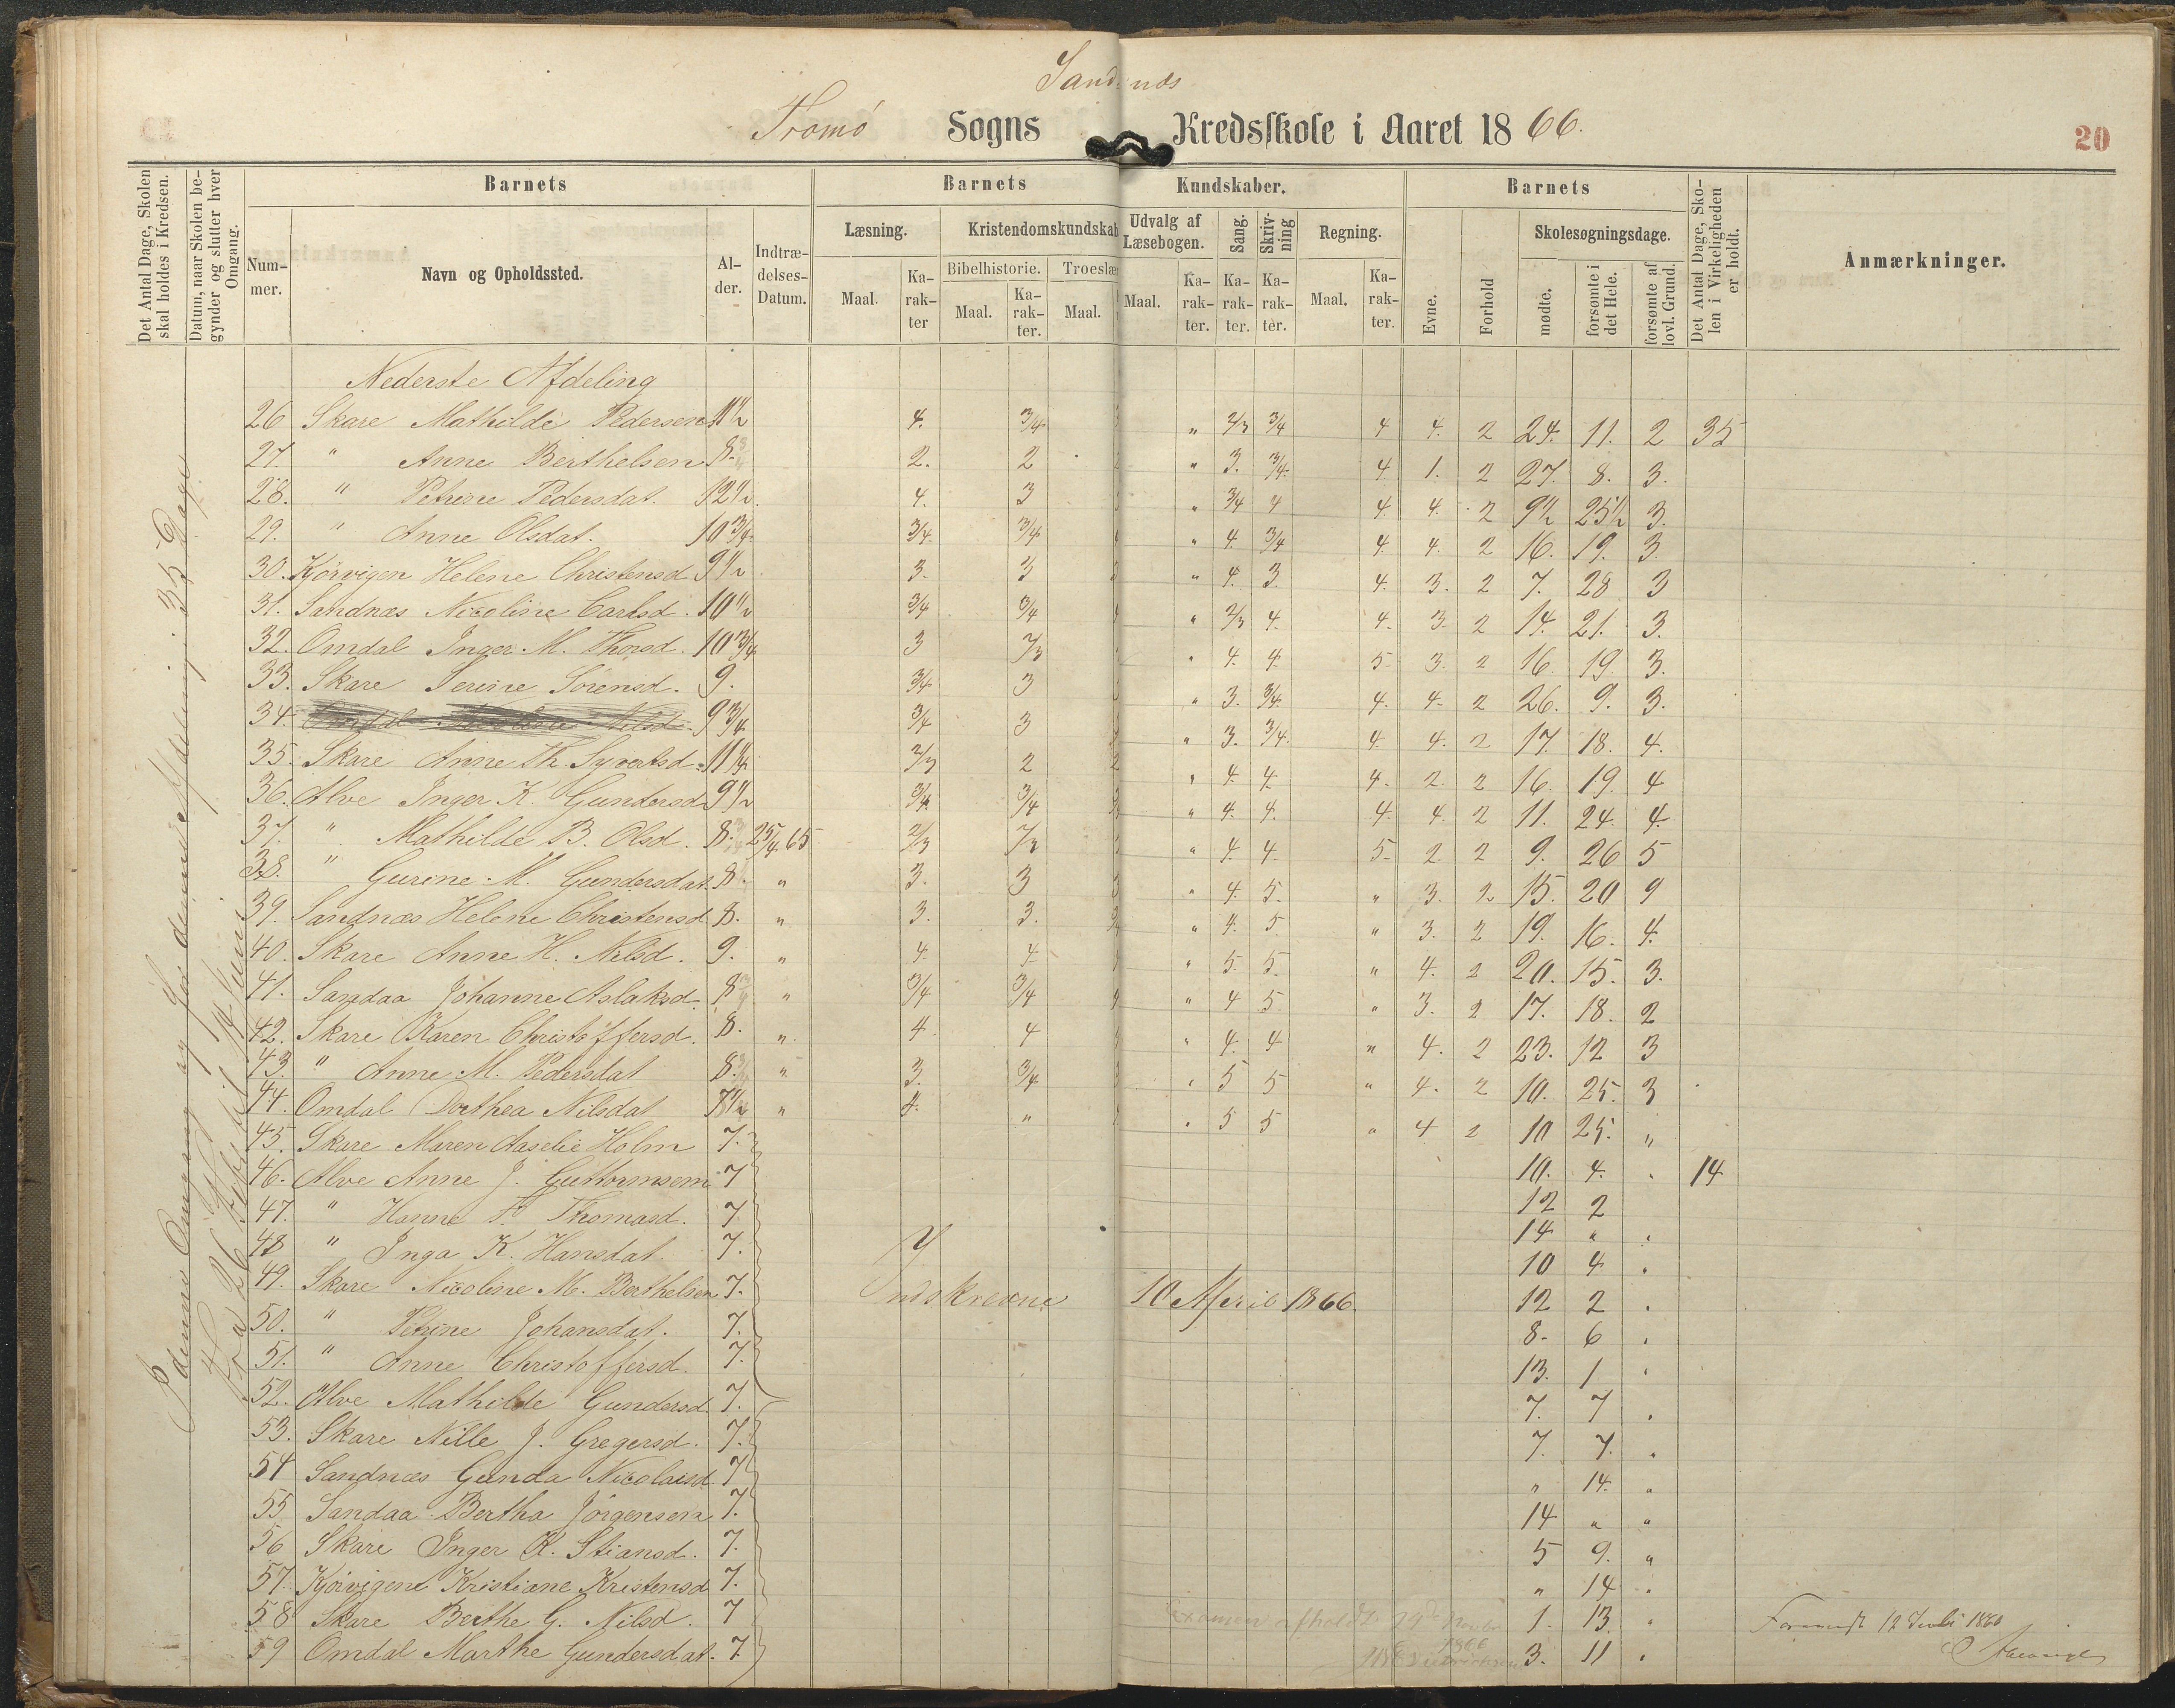 Sandnæs
Tromø Sogns Kredsskole i Aaret 1866.
20
Det Antal Dage, Skolen skal holdes i Kredsen.
Datum, naar Skolen begynder og slutter hver Omgang.
Barnets
Nummer.
Navn og Opholdssted.
Alder.
Indtrædelses-Datum.
Barnets Kundskaber.
Læsning.
Maal.
Karakter
Kristendomskundskab
Bibelhistorie.
Maal.
Karakter.
Troeslær
Maal.
Udvalg af Læsebogen.
Maal.
Karakter.
Sang.
Karakter.
Skrivning
Karakter.
Regning.
Maal.
Karakter.
Barnets
Evne.
Forhold
Skolesøgningsdage.
mødte.
forsømte i det Hele.
forsømte af lovl. Grund.
Det Antal Dage, Skolen i Virkeligheden er holdt.
Anmærkninger.
Nederste Afdeling
26 Skare Mathilde Pedersen 11½ 4. 3/4 " 2/3 3/4 4 4. 2 24. 11. 2 35
27. " Anne Berthelsen 8. 2. 2 " 3. 3/4 4 1. 2 27. 8. 3.
28. " Petrine Pedersdat. 12½ 4. 3 " 3/4 4 4 4. 2 9½ 25½ 3.
29. " Anne Olsdat. 10¾ 3/4 3/4 " 4 3/4 4. 4. 2 16. 19. 3
30. Kjörvigen Helene Christensd 9½ 3. 3 3 " 4. 3. 4. 3. 2 7. 28 3
31. Sandnæs Nicoline Carlsd. 10½ 3/4 3/4 " 2/3 4. 4. 3. 2 14. 21. 3.
32. Omdal Inger M. Thorsd. 10¾ 3 2/3 " 4. 4. 5 3. 2 16. 19. 3.
33. Skare Serine Sörensd. 9. 3/4 3 " 3. 3/4 4. 4. 2 26. 9. 3.
34. 9¾ 3/4 3 " 3. 3/4 4. 4. 2 17. 18. 4.
35. Skare Anne Th. Syvertsd. 11¼ 2/3 2 2 " 4. 4. 4. 2. 2 16. 19. 4
36. Alve Inger K. Gundersd 9½ 3/4 3/4 " 4. 4. 4. 4. 2 11. 24. 4.
37. " Mathilde B. Olsd. 8. 25/4 65 2/3 2/3 " 4. 4. 5. 2 2 9. 26 5
38. " Gurine M. Gundersdat. 8. " 3. 3 3 " 4. 5. " 3. 2 15. 20 9
39. Sandnæs Helene Christensd 8. " 3. 3. " 4. 5. " 3. 2 19. 16. 4.
40. Skare Anne H. Nilsd. 9. " 4. 4. " 5. 5. " 4. 2 20. 15. 3.
41. Sandaa Johanne Aslaksd. 8 " 3/4 3/4 " 4 5. " 3. 2 17. 18. 2
42. Skare Karen Christoffersd. 8. " 4 4 " 4. 4 " 4. 2 23. 12 3
43. " Anne M. Pedersdat 8. " 3. 3/4 " 5 5 " 4. 2 10. 25. 3
44. Omdal Dorthea Nilsdat 7½ " 4. " " 5 5 " 4 2 10 25. "
45. Skare Maren Aaselie Holm 7. 10. 4. " 14
46. Alve Anne J. Guttormsen 7 12 2
47. " Hanne F. Thomasd. 7 14 " "
48 " Inga K. Hansdat. 7. 10 4 "
49. Skare Nicoline M. Berthelsen 7. Indskrevne 10 April 1866. 12 2 "
50. " Petrine Johansdat. 7. 8. 6 "
51. " Anne Christoffersd. 7. 13. 1 "
52. Alve Mathilde Gundersd. 7. 7. 7 "
53. Skare Nille J. Gregersd. 7. 7. 7. "
54 Sandnæs Gunda Nicolaisd 7 " 14. "
55 Sandaa Bertha Jörgensen 7. 14 " "
56 Skare Inger K. Stiansd. 7. 5 9. "
57. Kjörvigene Kristiane Kristensd 7. " 14 "
58 Skare Berthe G. Nilsd. 7 1. 13. "
59 Omdal Marthe Gundersdat. 7 3. 11 "
I denne Omgang og for denne Afdeling: 35 Dage
Fra 26 Febr. til 14 Juni.
Examen afholdt 29de Novbr 1866
12 Juli 1866